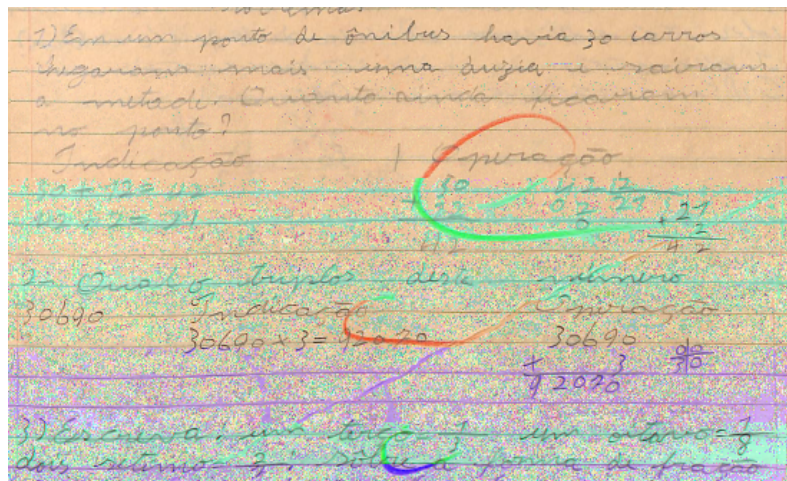 1) Em um ponto de ônibus havia 30 carros
chegaram mais uma duzia e sairam
a metade. Quanto ainda ficaram
no ponto?
Indicação | Operação
30 + 12 = 42 30 42 2
42 ÷ 2 = 21 + 12 02 21 21
42 0 × 2
42
2- Qual o triplos deste número
30690 Indicação Operação
30690 × 3 = 92070 30690
× 3
92070
3) Escreva: um terço = 1/3 um oitavo = 1/8
dois setimo = 2/7 a forma de fração